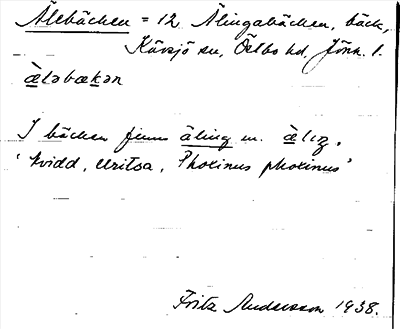 Älebäcken = 12 Älingabäcken, bäck,
Kävsjö sn, Östbo hd, Jönk. l.
ὰ̈ləbäkən
I bäcken finns äling m. ὰ̈lıŋ.
'kvidd, elritsa, Phoxinus phoxinus'
Fritz Andersson 1938.